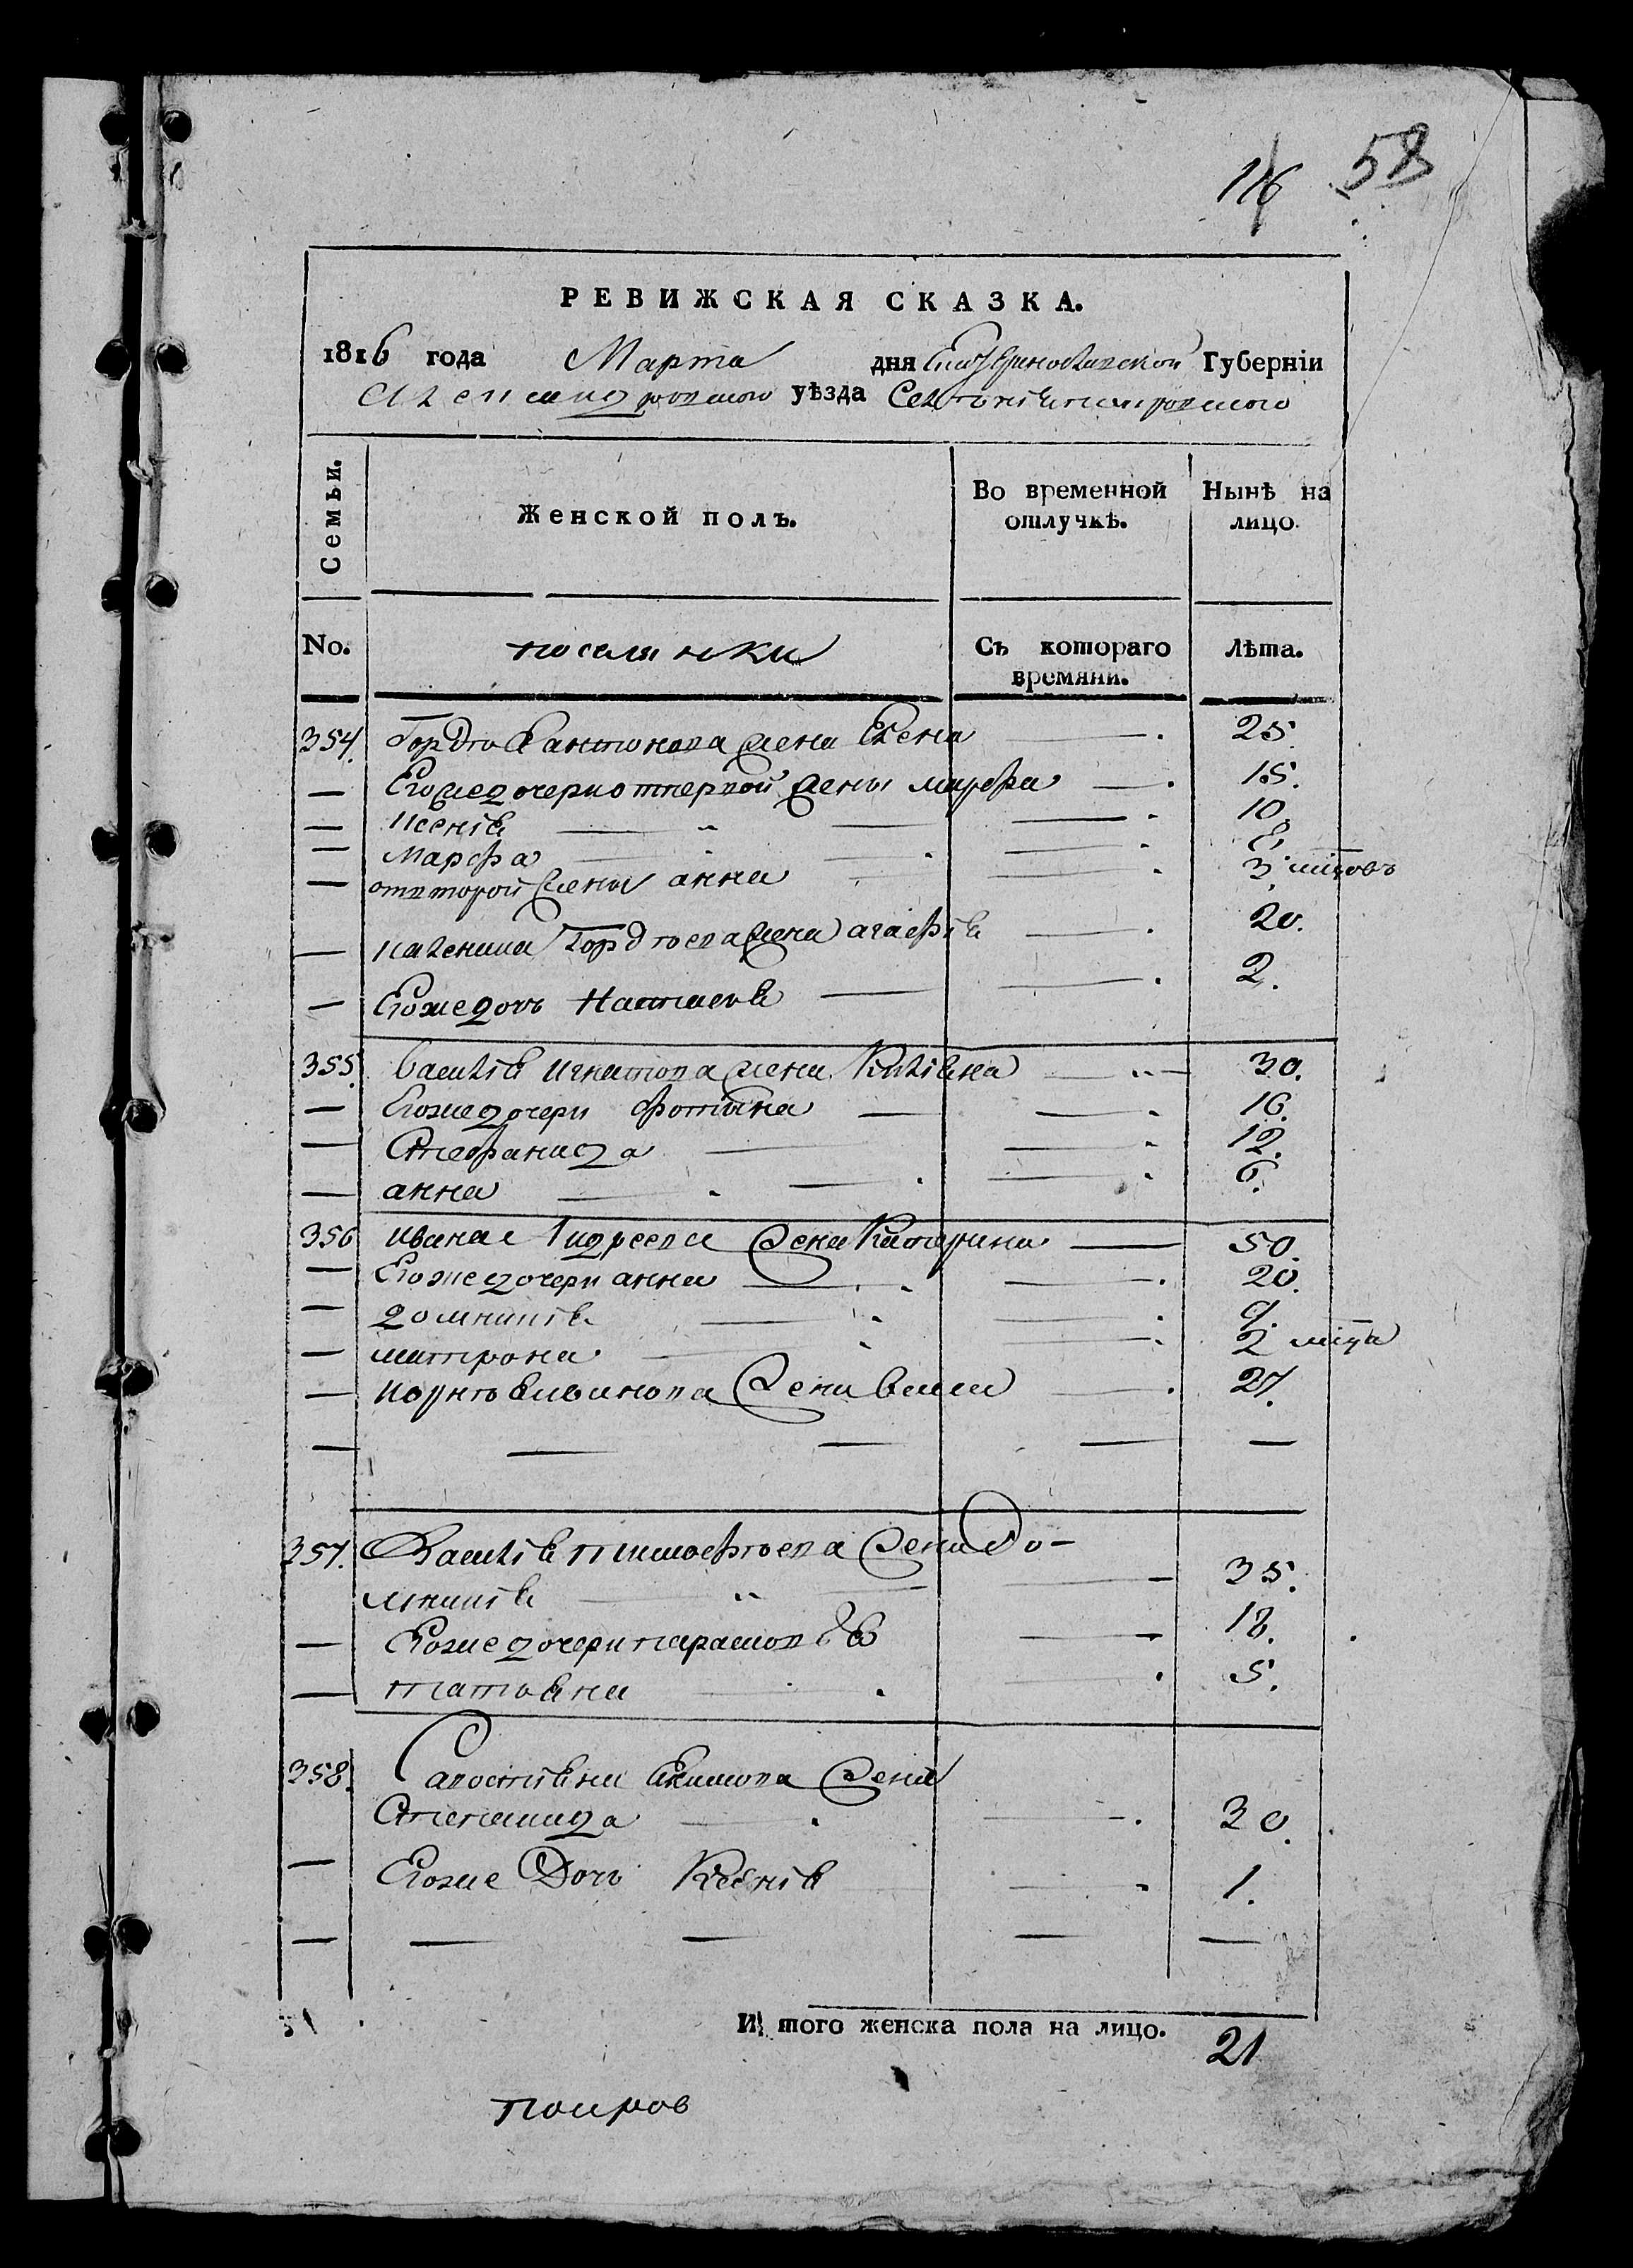 116 58
РЕВИЖСКАЯ СКАЗКА.
1816 года Марта дня Екатеринославской Губерніи
Александровскаго уѣзда
Семьи.
Женской полъ.
Во временной отлучкѣ.
Нынѣ на лицо.
No.
поселянки
Съ котораго времяни.
Лѣта.
354. Гордѣя антонова жена Елена 25.
— Его же дочери отпервой жены марфа 15.
— Ксенія 10.
— Марфа
— отвторой жены анна 3 мцовъ
— Гордѣева жена агафія 20.
— Его же дочь Настасья 2.
355. Василія игнатова жена Киліяна 30.
— Его же дочери фотина 16.
— Стефанида 12.
— анна 6.
356 ивана Андреева жена Катерина 50.
— Его же дочери анна 20.
— домникія 9.
— матрона 2 мца
— корнѣя иванова жена васса 27.
— — — — —
357. Василія тимофѣева жена До-
мникія 35.
— Его же дочери парасковья 18.
— татьяна 5.
358. Савостіяна Екимова жена
Степанида 30.
— Его же Дочь Ксенія 1.
— — — — —
И того женска пола на лицо. 21
покров